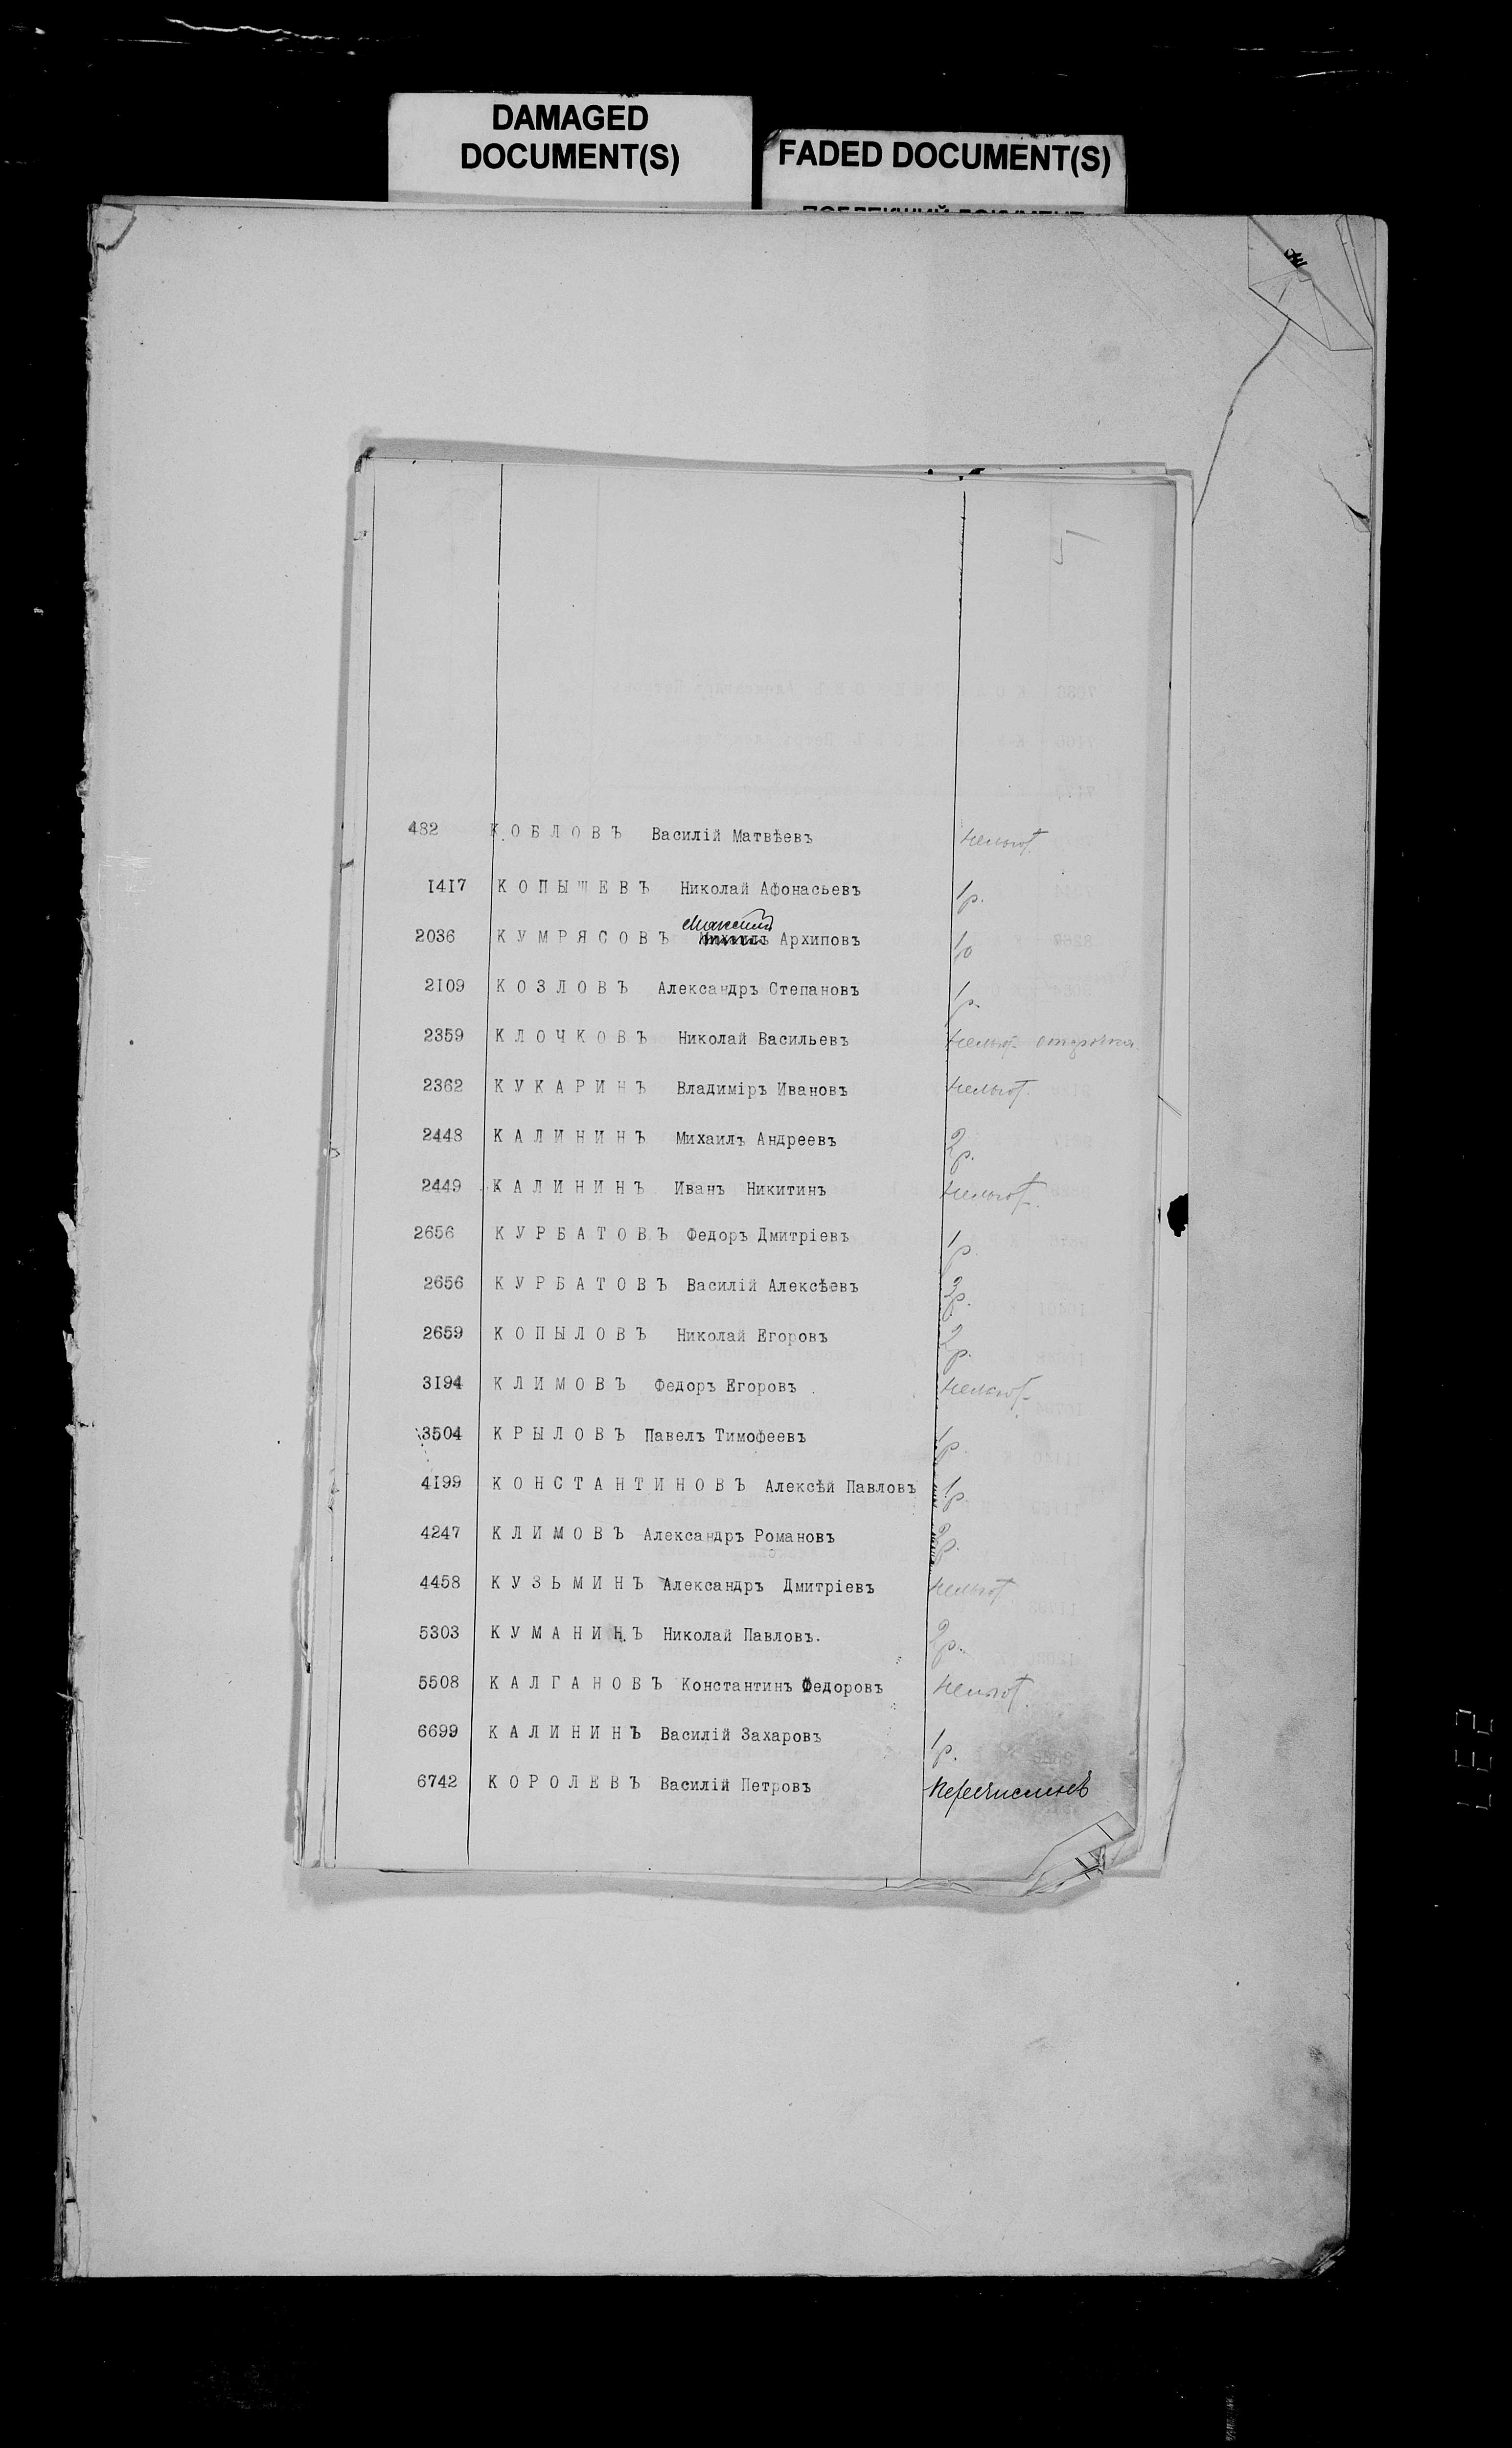 DAMAGED
DOCUMENT(S)
FADED DOCUMENT(S)
5
482 КОБЛОВЪ Василій Матвѣевъ нельгот.
1417 КОПЫШЕВЪ Николай Афонасьевъ 1р.
2036 КУМРЯСОВЪ Максимъ Архиповъ 1р
2109 КОЗЛОВЪ Александръ Степановъ 1р.
2359 КЛОЧКОВЪ Николай Васильевъ нельгот. отсрочка.
2362 КУКАРИНЪ Владиміръ Ивановъ нельгот.
2448 КАЛИНИНЪ Михаилъ Андреевъ 2р.
2449 КАЛИНИНЪ Иванъ Никитинъ нельгот.
2656 КУРБАТОВЪ Федоръ Дмитріевъ 1р.
2656 КУРБАТОВЪ Василій Алексѣевъ 2р.
2659 КОПЫЛОВЪ Николай Егоровъ 2р.
3194 КЛИМОВЪ Федоръ Егоровъ нельгот.
3504 КРЫЛОВЪ Павелъ Тимофеевъ 1р.
4199 КОНСТАНТИНОВЪ Алексѣй Павловъ 1р.
4247 КЛИМОВЪ Александръ Романовъ 2р.
4458 КУЗЬМИНЪ Александръ Дмитріевъ нельгот
5303 КУМАНИНЪ Николай Павловъ. 2р.
5508 КАЛГАНОВЪ Константинъ Федоровъ нельгот.
6699 КАЛИНИНЪ Василій Захаровъ 1р.
6742 КОРОЛЕВЪ Василій Петровъ Перечисленъ